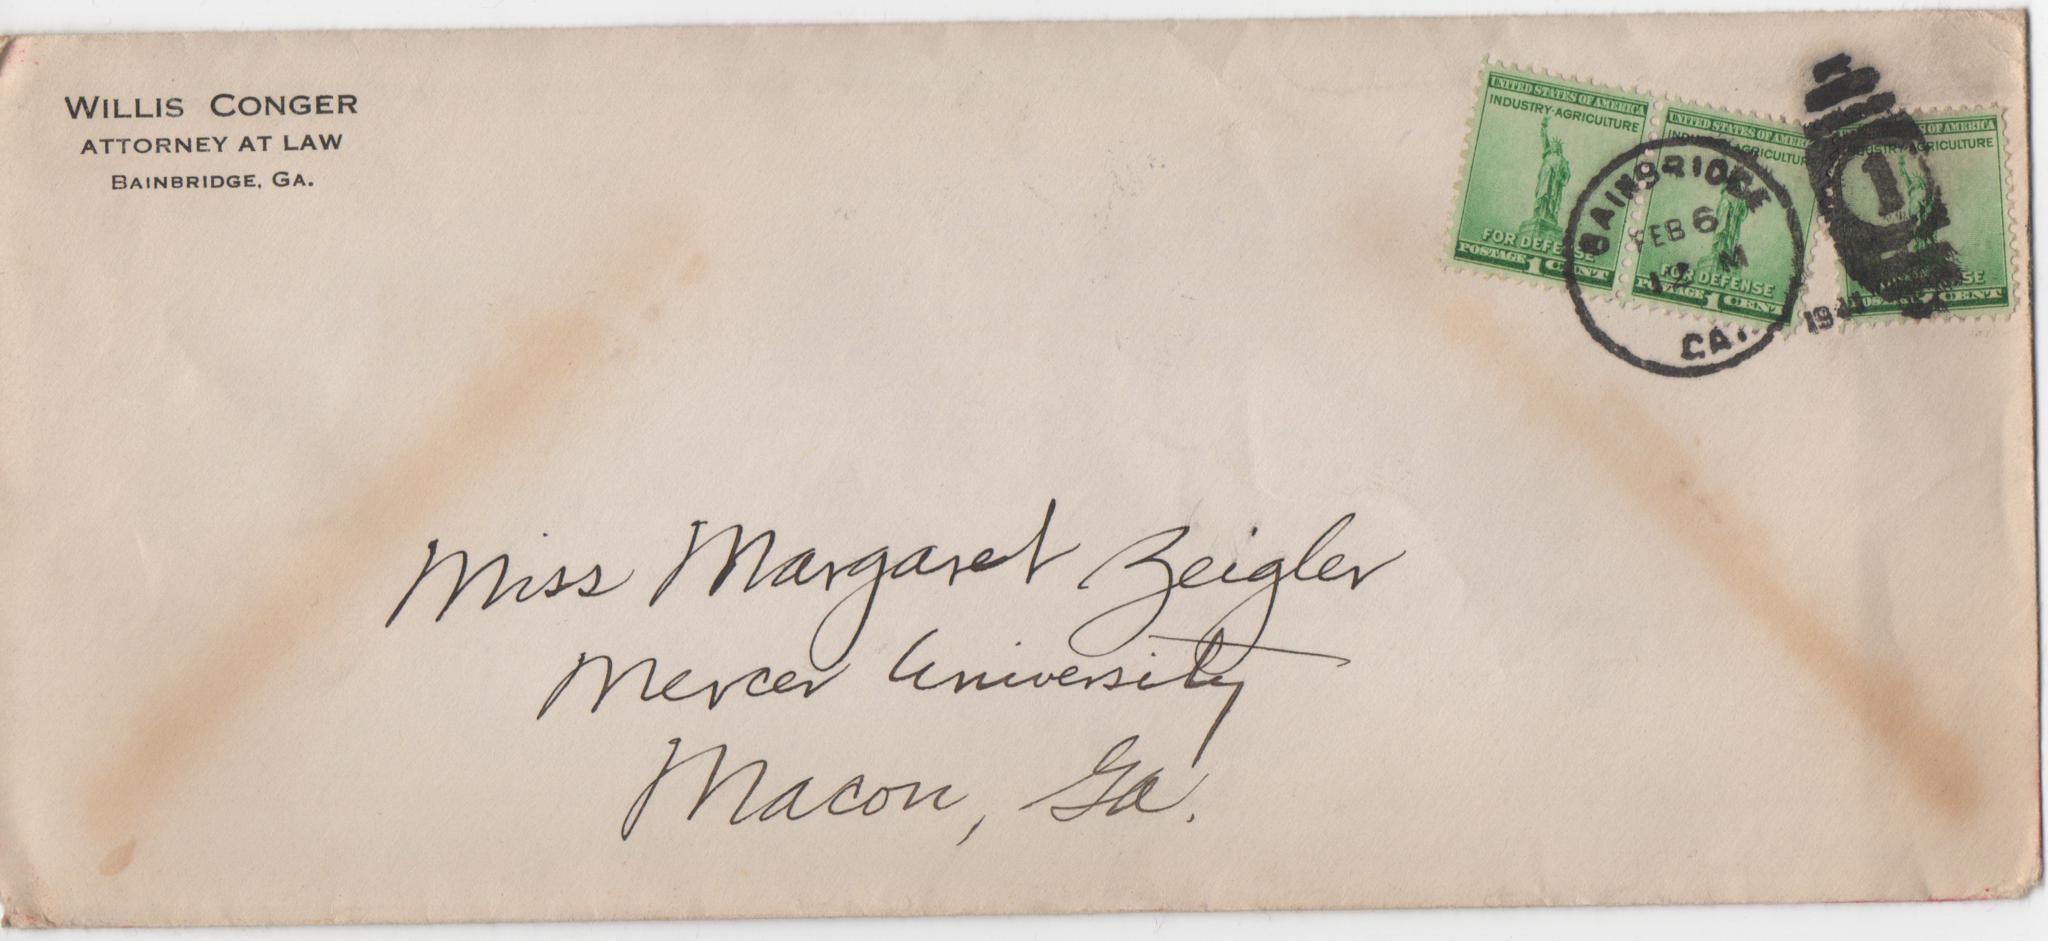 WILLIS CONGER
ATTORNEY AT LAW
BAINBRIDGE, GA.
UNITED STATES OF AMERICA
INDUSTRY·AGRICULTURE
FOR DEFENSE
POSTAGE 1 CENT
UNITED STATES OF AMERICA
INDUSTRY AGRICULTURE
FOR DEFENSE
POSTAGE 1 CENT
OF AMERICA
INDUSTRY AGRICULTURE
CENT
BAINBRIDGE
FEB 6
12 M
GA.
1941
1
Miss Margaret Zeigler
Mercer University
Macon, Ga.